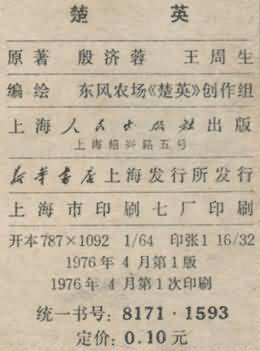 楚英
原著 殷济蓉 王周生
编绘 东风农场《楚英》创作组
上海人民出版社出版
上海绍兴路五号
新华书店上海发行所发行
上海市印刷七厂印刷
开本787×1092 1/64 印张1 16/32
1976年4月第1版
1976年4月第1次印刷
统一书号：8171·1593
定价：0.10元